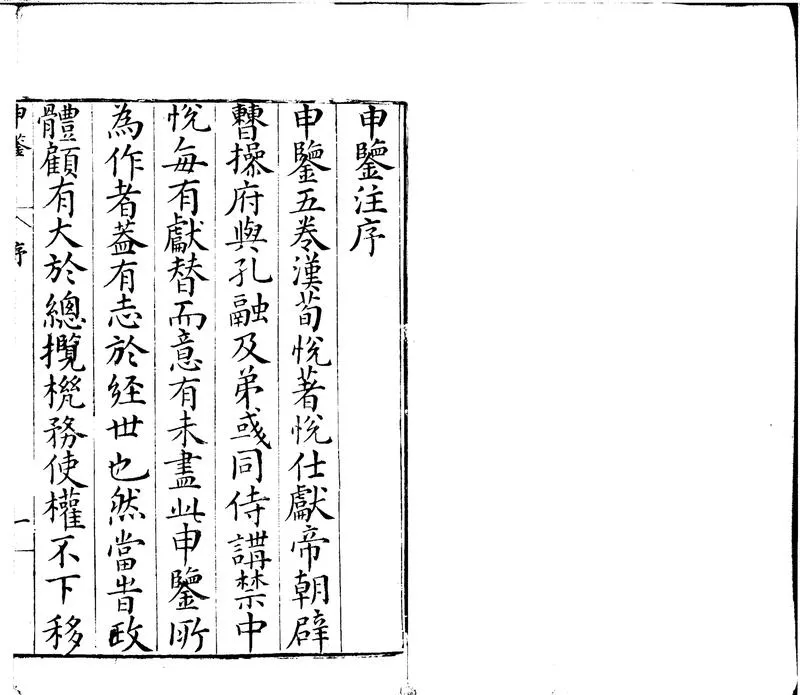 申鑒注序
申鑒五卷漢荀悅著悅仕獻帝朝辟
曹操府與孔融及弟彧同侍講禁中
悅每有獻替而意有未盡此申鑒所
為作者蓋有志於經世也然當旹政
體顧有大於總攬機務使權不下移
申鑒
序
一